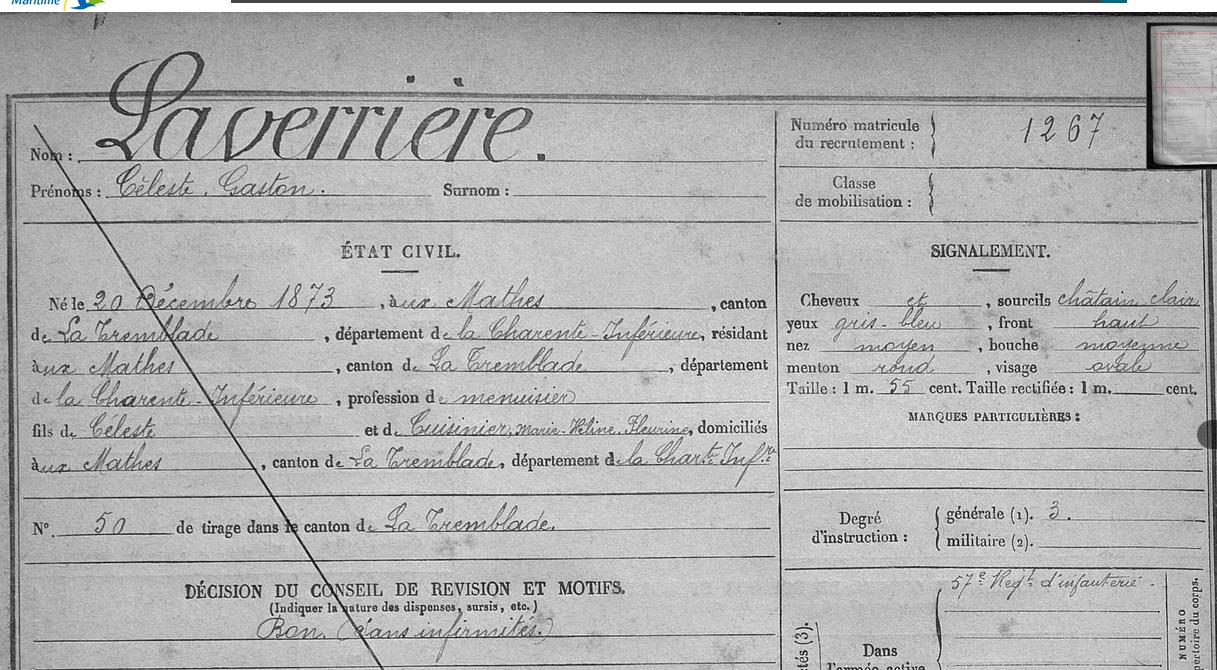 Maritime
Laverrière.
Nom :
Prénoms : Céleste. Gaston. Surnom :
Numéro matricule du recrutement : 1267
Classe de mobilisation :
ÉTAT CIVIL.
Né le 20 Décembre 1873, à aux Mathes, canton
de La Tremblade, département de la Charente-Inférieure, résidant
à aux Mathes, canton de La Tremblade, département
de la Charente-Inférieure, profession de menuisier
fils de Céleste et de Cuisinier, Marie-Héline, Fleurine, domiciliés
à aux Mathes, canton de La Tremblade, département de la Charte Infre
N° 50 de tirage dans le canton de La Tremblade.
DÉCISION DU CONSEIL DE REVISION ET MOTIFS.
(Indiquer la nature des dispenses, sursis, etc.)
Bon. (sans infirmités.)
SIGNALEMENT.
Cheveux et, sourcils châtain clair
yeux gris-bleu, front haut
nez moyen, bouche moyenne
menton rond, visage ovale
Taille : 1 m. 55 cent. Taille rectifiée : 1 m. cent.
MARQUES PARTICULIÈRES :
Degré d'instruction : générale (1). 3.
militaire (2).
57e Regt d'infanterie.
Dans
l'armée active
NUMÉRO